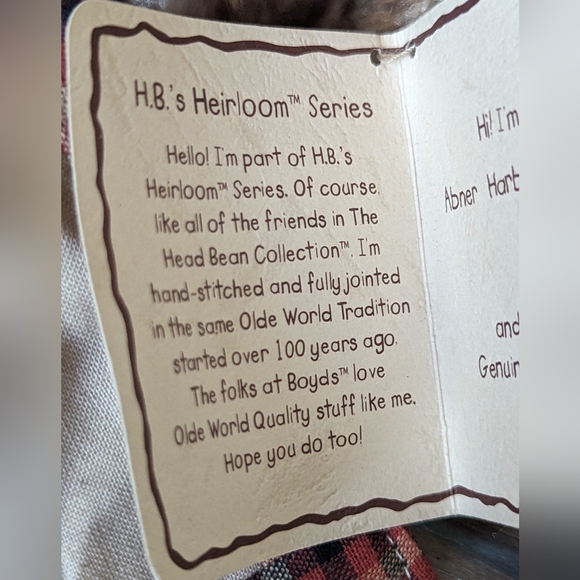 H.B.'s Heirloom™ Series
Hello! I'm part of H.B.'s
Heirloom™ Series. Of course,
like all of the friends in The
Head Bean Collection™, I'm
hand-stitched and fully jointed
in the same Olde World Tradition
started over 100 years ago.
The folks at Boyds™ love
Olde World Quality stuff like me.
Hope you do too!
Hi! I'm
Abner Hart
and